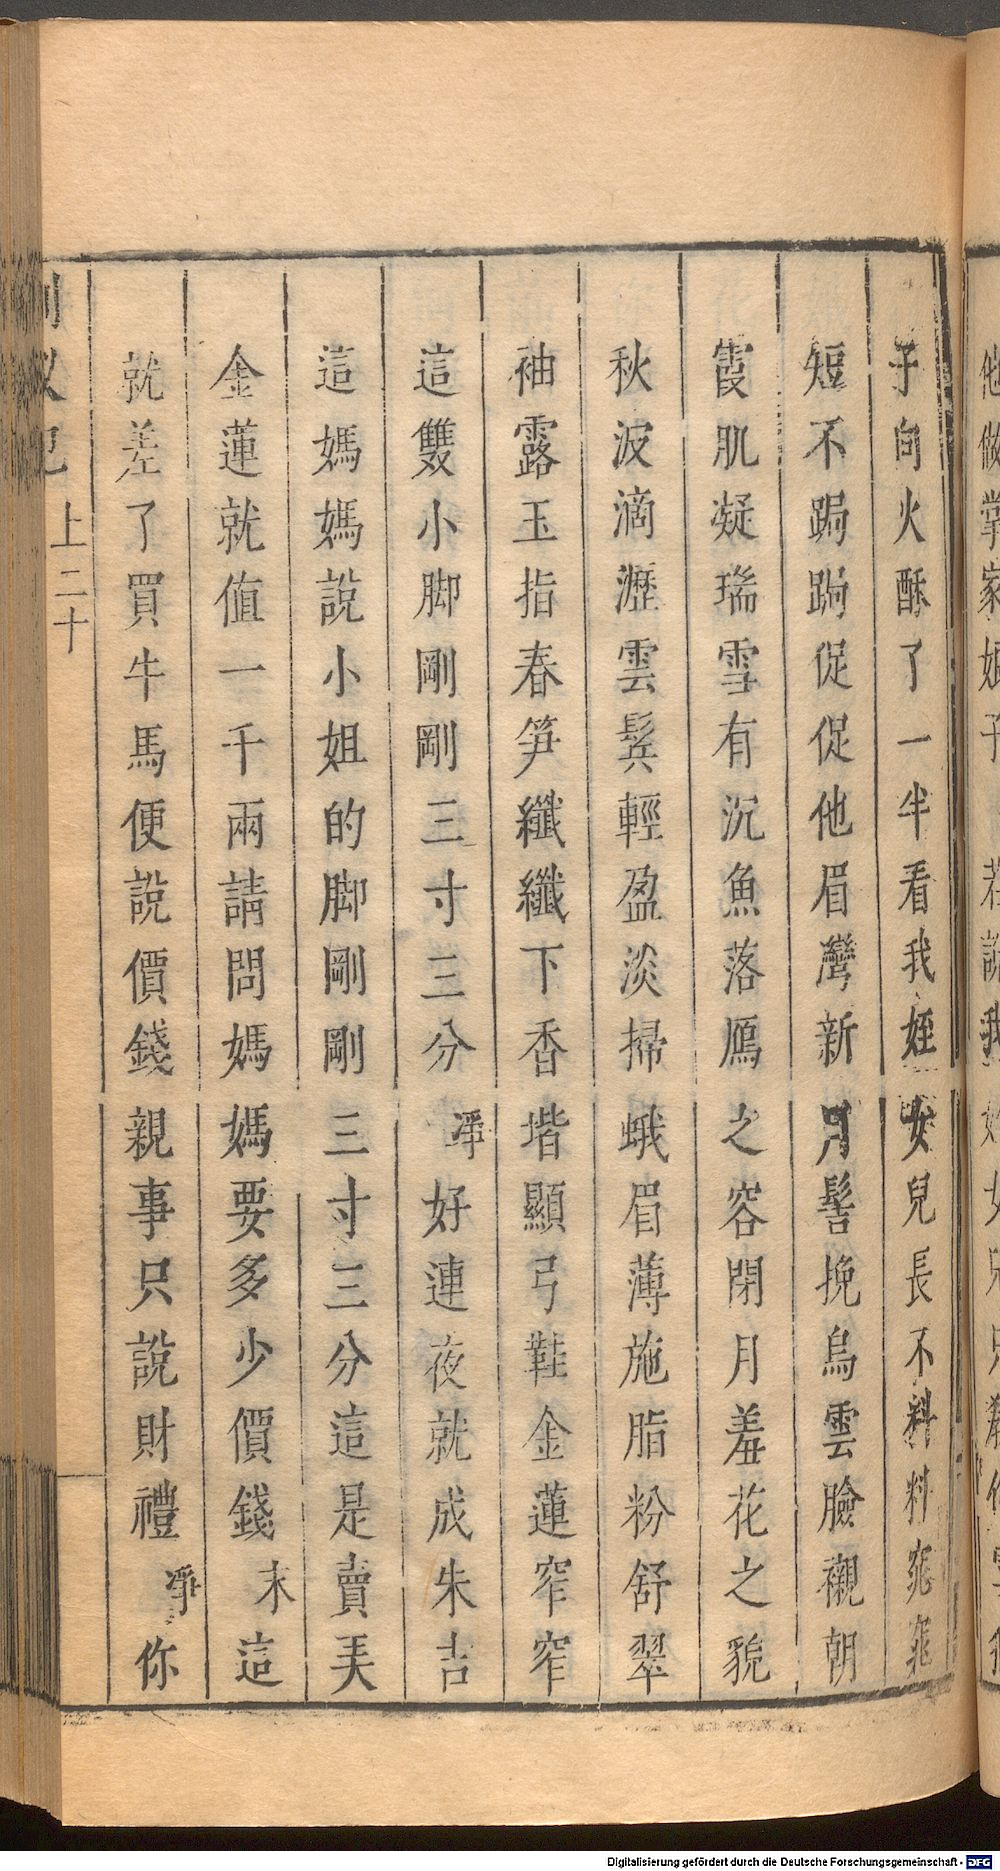 子向火酥了一半看我姪女兒長不料料窕窕
短不跼跼促促他眉灣新月髻挽烏雲臉襯朝
霞肌凝瑞雪有沉魚落鴈之容閉月羞花之貌
秋波滴瀝雲鬂輕盈淡掃蛾眉薄施脂粉舒翠
袖露玉指春笋纖纖下香堦顯弓鞋金蓮窄窄
這雙小脚剛剛三寸三分淨好連夜就成朱吉
這媽媽說小姐的脚剛剛三寸三分這是賣美
金蓮就值一千兩請問媽媽要多少價錢末這
就差了買牛馬便說價錢親事只說財禮淨你
上二十
Digitalisierung gefördert durch die Deutsche Forschungsgemeinschaft - DFG